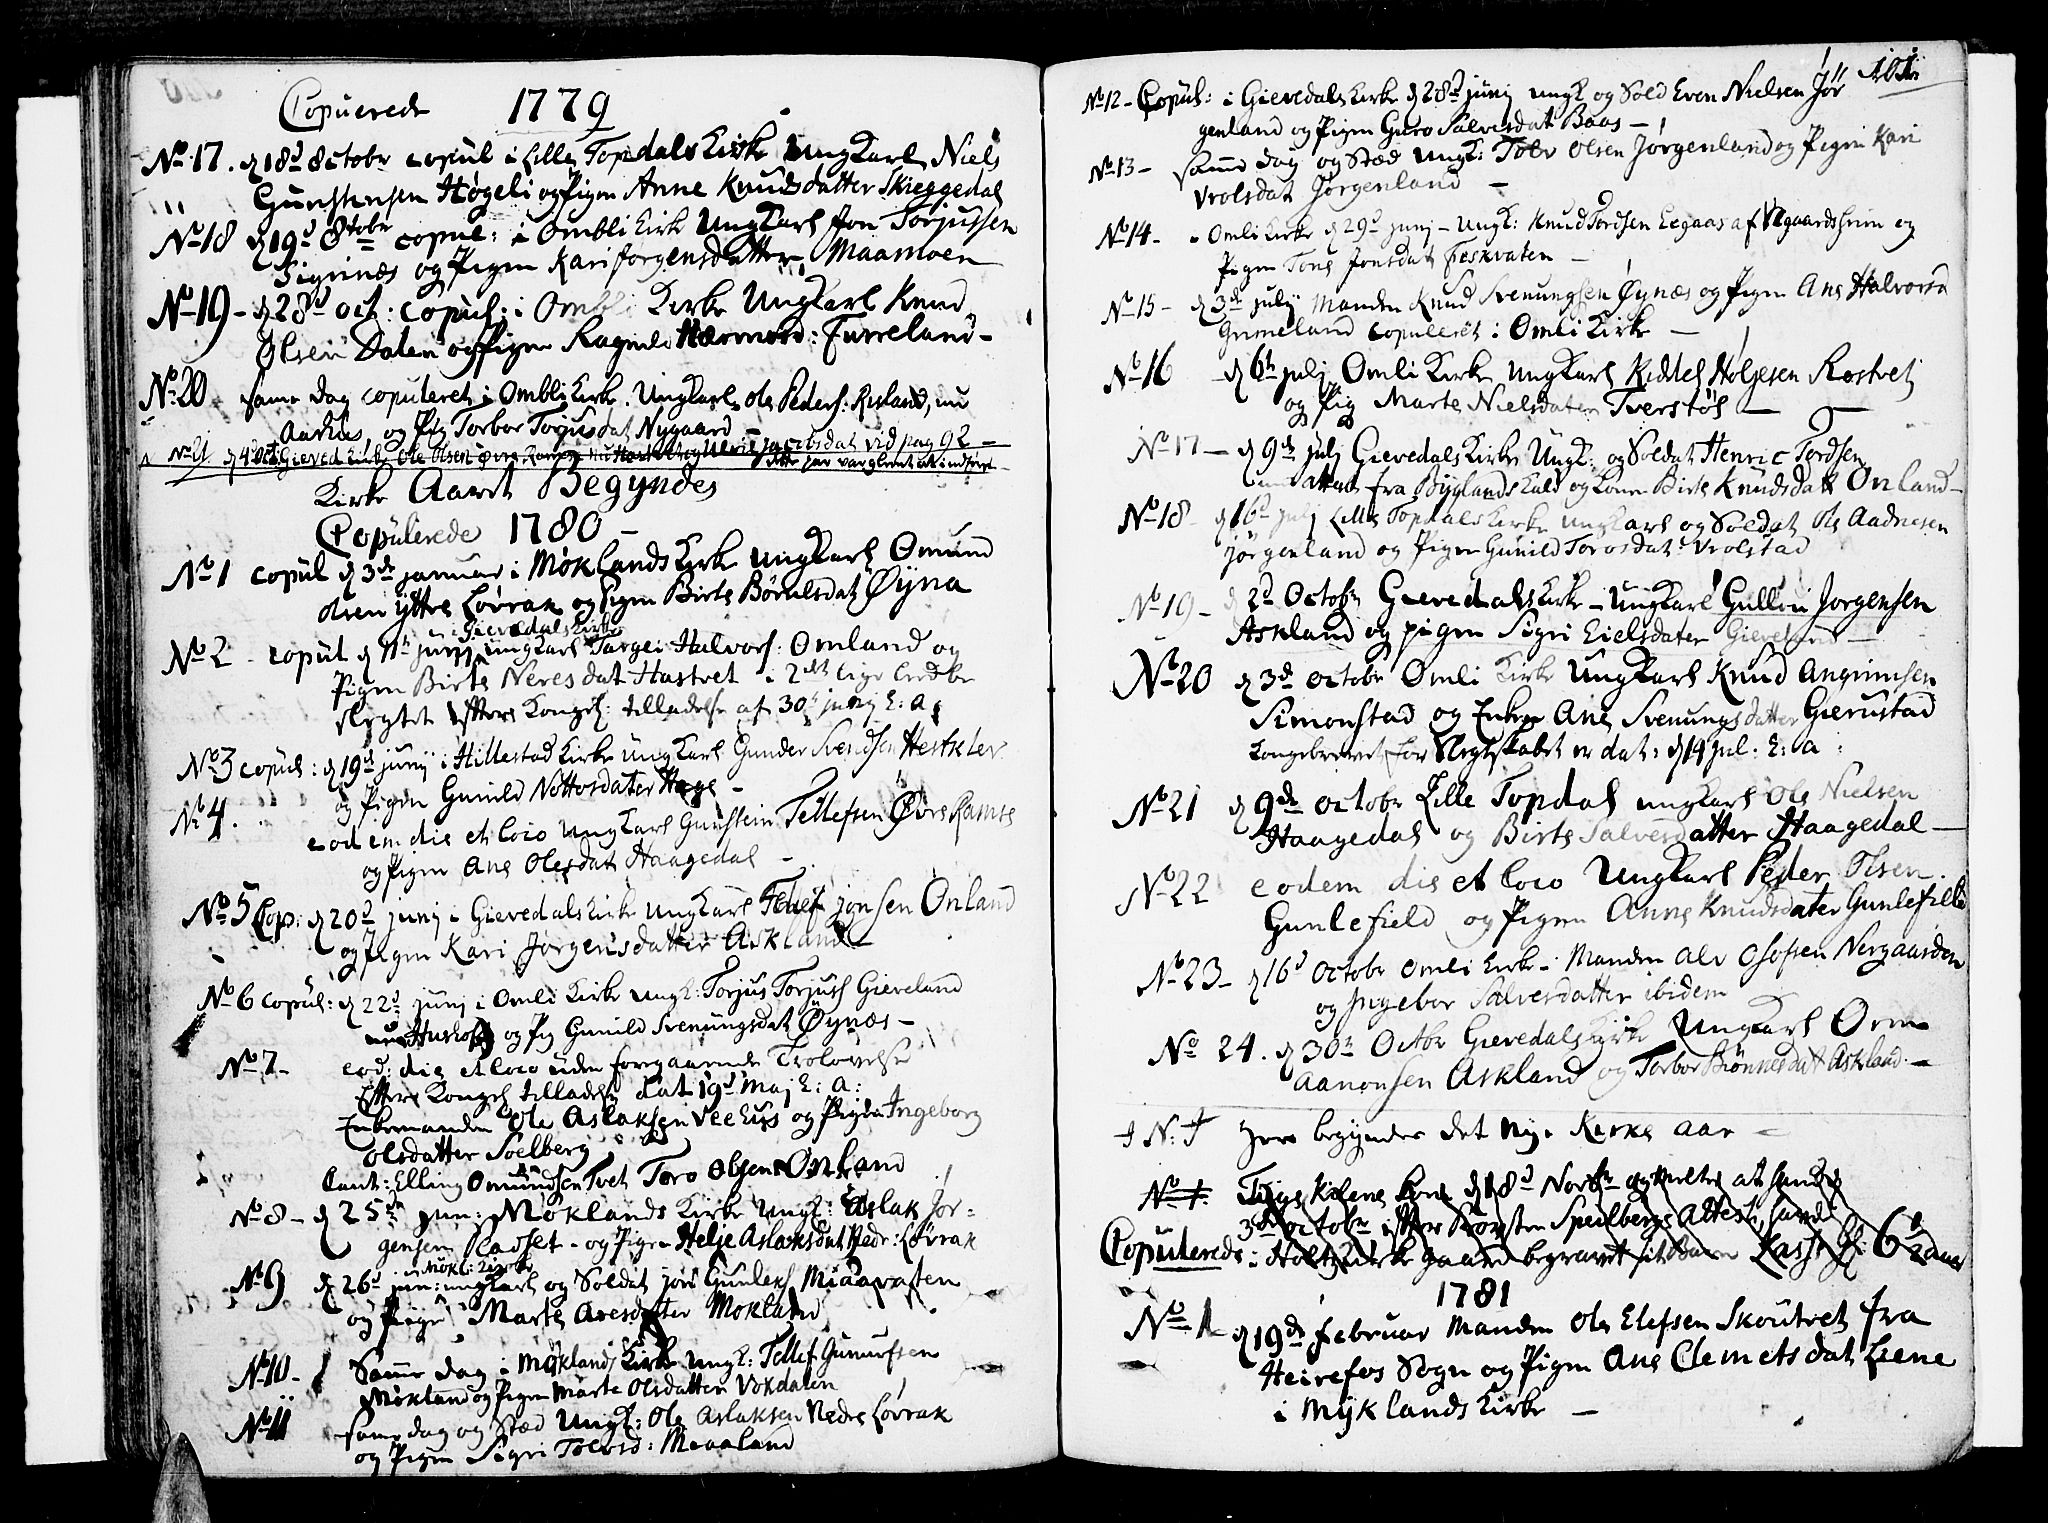 Copulerede 1779
No 17. d 18d 8ctobr copul i Lille Topdals Kirke UngKarl Niels
Gunstensen Høgeli og Pigen Anne Knudsdatter Skieggedal
No 18 d 19d 8tobr copul: i Ombli Kirk UngKarl Jon Torjussen
Sigrinæs og Pigen Kari Jorgensdatter Maamoen
No 19 - d 28d oct: copul: i Ombli Kirke UngKarl Knud
Olsen Dalen og Pigen Ragnild Hærmord: Furreland -
No 20 same Dag copuleret i Ombli Kirke. UngKarl Ole Peders: Risland, nu
Aarhus, og Pig Torbor Torjusdat Nygaard -
No 21 d 4d Oct: Gieved Kirke Ole Olsen øvre Ramse vid pag 92 -
Kirke Aaret Begyndes
Copulerede 1780 -
No 1 copul d 3de januar i Møklands Kirke UngKarl Omund
olsen yttre Løvrak og Pigen Birte Børulsdat Øyna
Gievedals Kirke
No 2 - copul d 11te junj ungKarl Targei Halvors: Omland og
Pigen Birte Neresdat Hastvet i 2det lige led be
slegtet Efter Kongel: tilladelse af 30te junij h: a:
No 3 copul: d 19d junij i Hillestad Kirke ungKarl Gunder Svendsen Hestklev
og Pigen Gunild Nottosdater Hage -
No 4. eodem die et loco UngKarl Gunstein Tellefsen Øvre Ramse
og Pigen Ane Olesdat Haagedal -
No 5 Cop: d 20d junj i Gievedals Kirke UngKarl Tellef jonsen Onland
og Pigen Kari Jørgensdatter Askland -
No 6 copul: d 22d junj i Omli Kirke ungk: Torjus Torjuss Gieveland
og Pig Gunild Svenungsdat Øynæs -
No 7 - eod: die et loco uden forgaaende Trolovelse
Efter Kongel tilladelse dat 19d Maj h: a:
Enkemanden Ole Aslaksen Veehus og Pigen Ingeborg
olsdatter Solberg
Caut: Elling Omundsen Tvet Toro Olsen Onland
No 8 - d 25de jun: Møklands Kirke Ungk: Aslak Jør-
gensen Ladset - og Pigen Helje Aslaksdat Nedr: Løvrak
Møkl: Kirke
No 9 d 26d jun: ungkarl og Soldat jon Gunlefs Miaavaten
og Pige Marte Aresdatter Mokland
No 10 - Samme dag i Møklands Kirke Ungk: Tellef Gunulfsen
Møkland og Pigen Marte Olsdatter Vokdalen
No 11 samme dag og Stæd Ungk: Ole Aslaksen Nedre Løvrak
og Pigen Sigri Tolvsd: Miaaland
101
No 12 - Copul: i Gievedals Kirke d 28d junj Ungk og Sold Even Nielsen Jør
genland og Pigen Guro Salvesdat Baas -
No 13 - samme dag og Stæd Ungk: Tolv Olsen Jørgenland og Pigen Kari
Vrolsdat Jørgenland -
No 14 - i Omli Kirke d 29d junj - Ungk: Knud Tordsen Eegaas af Ve
og
Pigen Tone Jonsdat Fiskvaten -
No 15 - d 3de julij Manden Knud Svenungsen Øynæs og Pigen Ane Halvorsd
Grimeland copuleret i Omli Kirke -
No 16 - d 6te julj Omli Kirke UngKarl Kiddel Holjesen Rostvet
og Pig Marte Nielsdater Tverstøl -
No 17 - d 9de julj Gievedals Kirke Ungk: og Soldat Henric Tordsen
fra Byglands Kald og Konen Birte Knudsdatt Onland -
No 18 - d 16d julj Lille Topdals Kirke UngKarl og Soldat Ole Aadnesen
jørgenland og Pigen Gunild Torosdat: Vrolstad
No 19 - d 2d Octobr Gievedals Kirke - UngKarl Gullov Jorgensen
Askland og pigen Sigri Eielsdater Gieveland -
No 20 d 3de octobr Omli Kirke UngKarl Knud Angrimsen
Simonstad og Enken Ane Svenungsdatter Gierustad
Kongebrevet for Slegtskabet er dat: d 14 jul. h: a:
No 21 d 9de octobr Lille Topdal ungkarl Ole Nielsen
Haagedal og Birte Salvesdatter Haagedal -
No 22 eodem die et loco Ungkarl Peder Olsen
Gunlefield og Pigen Anne Knudsdater Gunlefield
No 23 - d 16d Octobr Omli Kirke - Manden Alv Osofsen Nergaarden
og Ingebor Salvesdatter ibidem
No 24. d 30te Octbr Gievedals Kirke UngKarl Orm
Aanonsen Askland og Torbor Biønnesdat Askland. -
N: Her begynder det nye Kirke Aar -
No 1. d 18d Novbr og meltes at hendes
3de octobr efter Torsten Spedbergs Attest
Copulerede i Holt Kirke gaard begravet sit Barn 6 aar
1781
No 1 d 19de februar Manden Ole Elefsen Skoutvet fra
Heirefos Sogn og Pigen Ane Clemetsdat Liene
i Myklands Kirke -